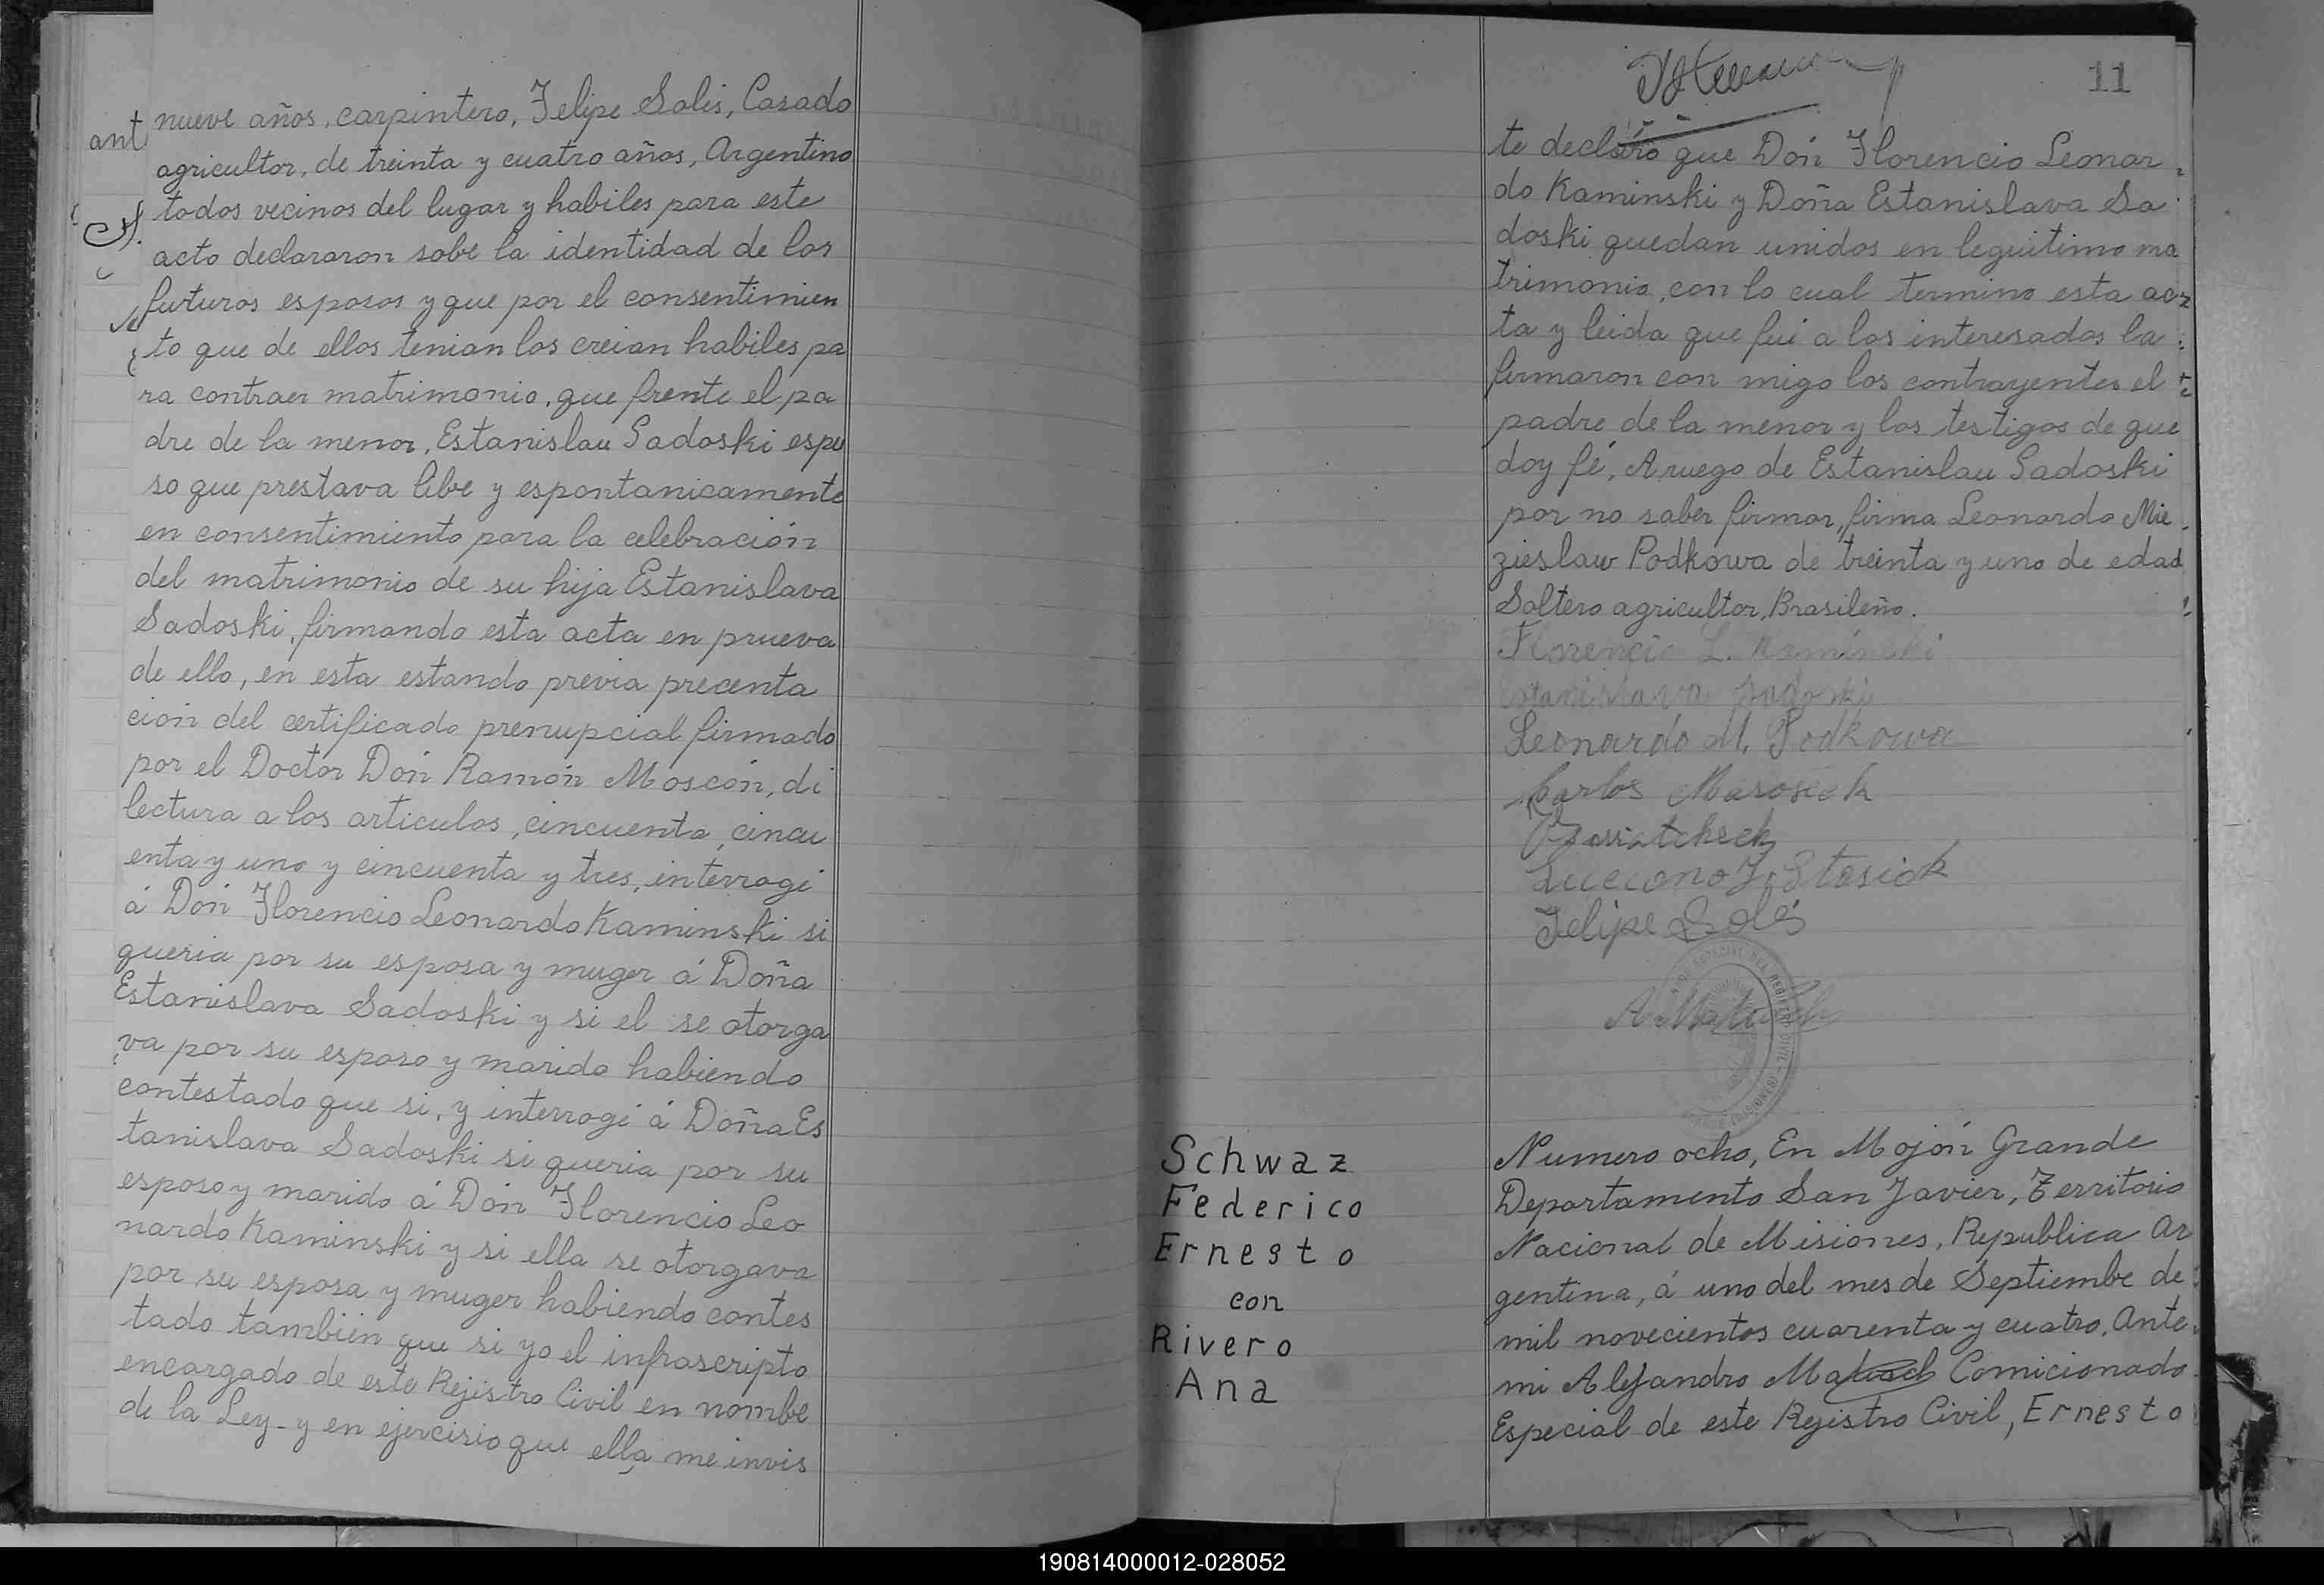 nueve años, carpintero, Felipe Solis, Casado
agricultor, de treinta y cuatro años, Argentino
todos vecinos del lugar y habiles para este
acto declararon sobe la identidad de los
futuros esposos y que por el consentimien
to que de ellos tenian los creian habiles pa
ra contraer matrimonio, que frente el pa
dre de la menor, Estanislau Sadoski espu
so que prestava libe y espontanicamente
en consentimiento para la celebración
del matrimonio de su hija Estanislava
Sadoski, firmando esta acta en prueva
de ello, en esta estando previa precenta
ción del certificado prenupcial firmado
por el Doctor Don Ramón Moscón, di
lectura a los articulos, cincuenta, cincu
enta y uno y cincuenta y tres, interrogé
á Don Florencio Leonardo Kaminski si
queria por su esposa y muger á Doña
Estanislava Sadoski y si el se otorga
va por su esposo y marido habiendo
contestado que si, y interrogé á Doña Es
tanislava Sadoski si queria por su
esposo y marido á Don Florencio Leo
nardo Kaminski y si ella se otorgava
por su esposa y muger habiendo contes
tado tambien que si yo el infrascripto
encargado de este Rejistro Civil en nombe
de la Ley - y en ejercisio que ella me invis
11
te declaro que Don Florencio Leonar
do Kaminski y Doña Estanislava Sa
doski quedan unidos en leguitimo ma
trimonio, con lo cual termino esta ac
ta y leida que fué a los interesados la
firmaron con migo los contrayentes el
padre de la menor y los testigos de que
doy fé, A ruego de Estanislau Sadoski
por no saber firmar, firma Leonardo Mie
zieslaw Podkowa de treinta y uno de edad
Soltero agricultor, Brasileño.
Florencio L. Kaminski
Estanislava Sadoski
Leonardo M. Podkowa
Carlos
Felipe Solis
Schwaz
Federico
Ernesto
con
Rivero
Ana
Numero ocho, En Mojón Grande
Departamento San Javier, Territorio
Nacional de Misiones, Republica Ar
gentina, á uno del mes de Septiembe de
mil novecientos cuarenta y cuatro, Ante
mi Alejandro Comicionado
Especial de este Rejistro Civil, Ernesto
190814000012-028052